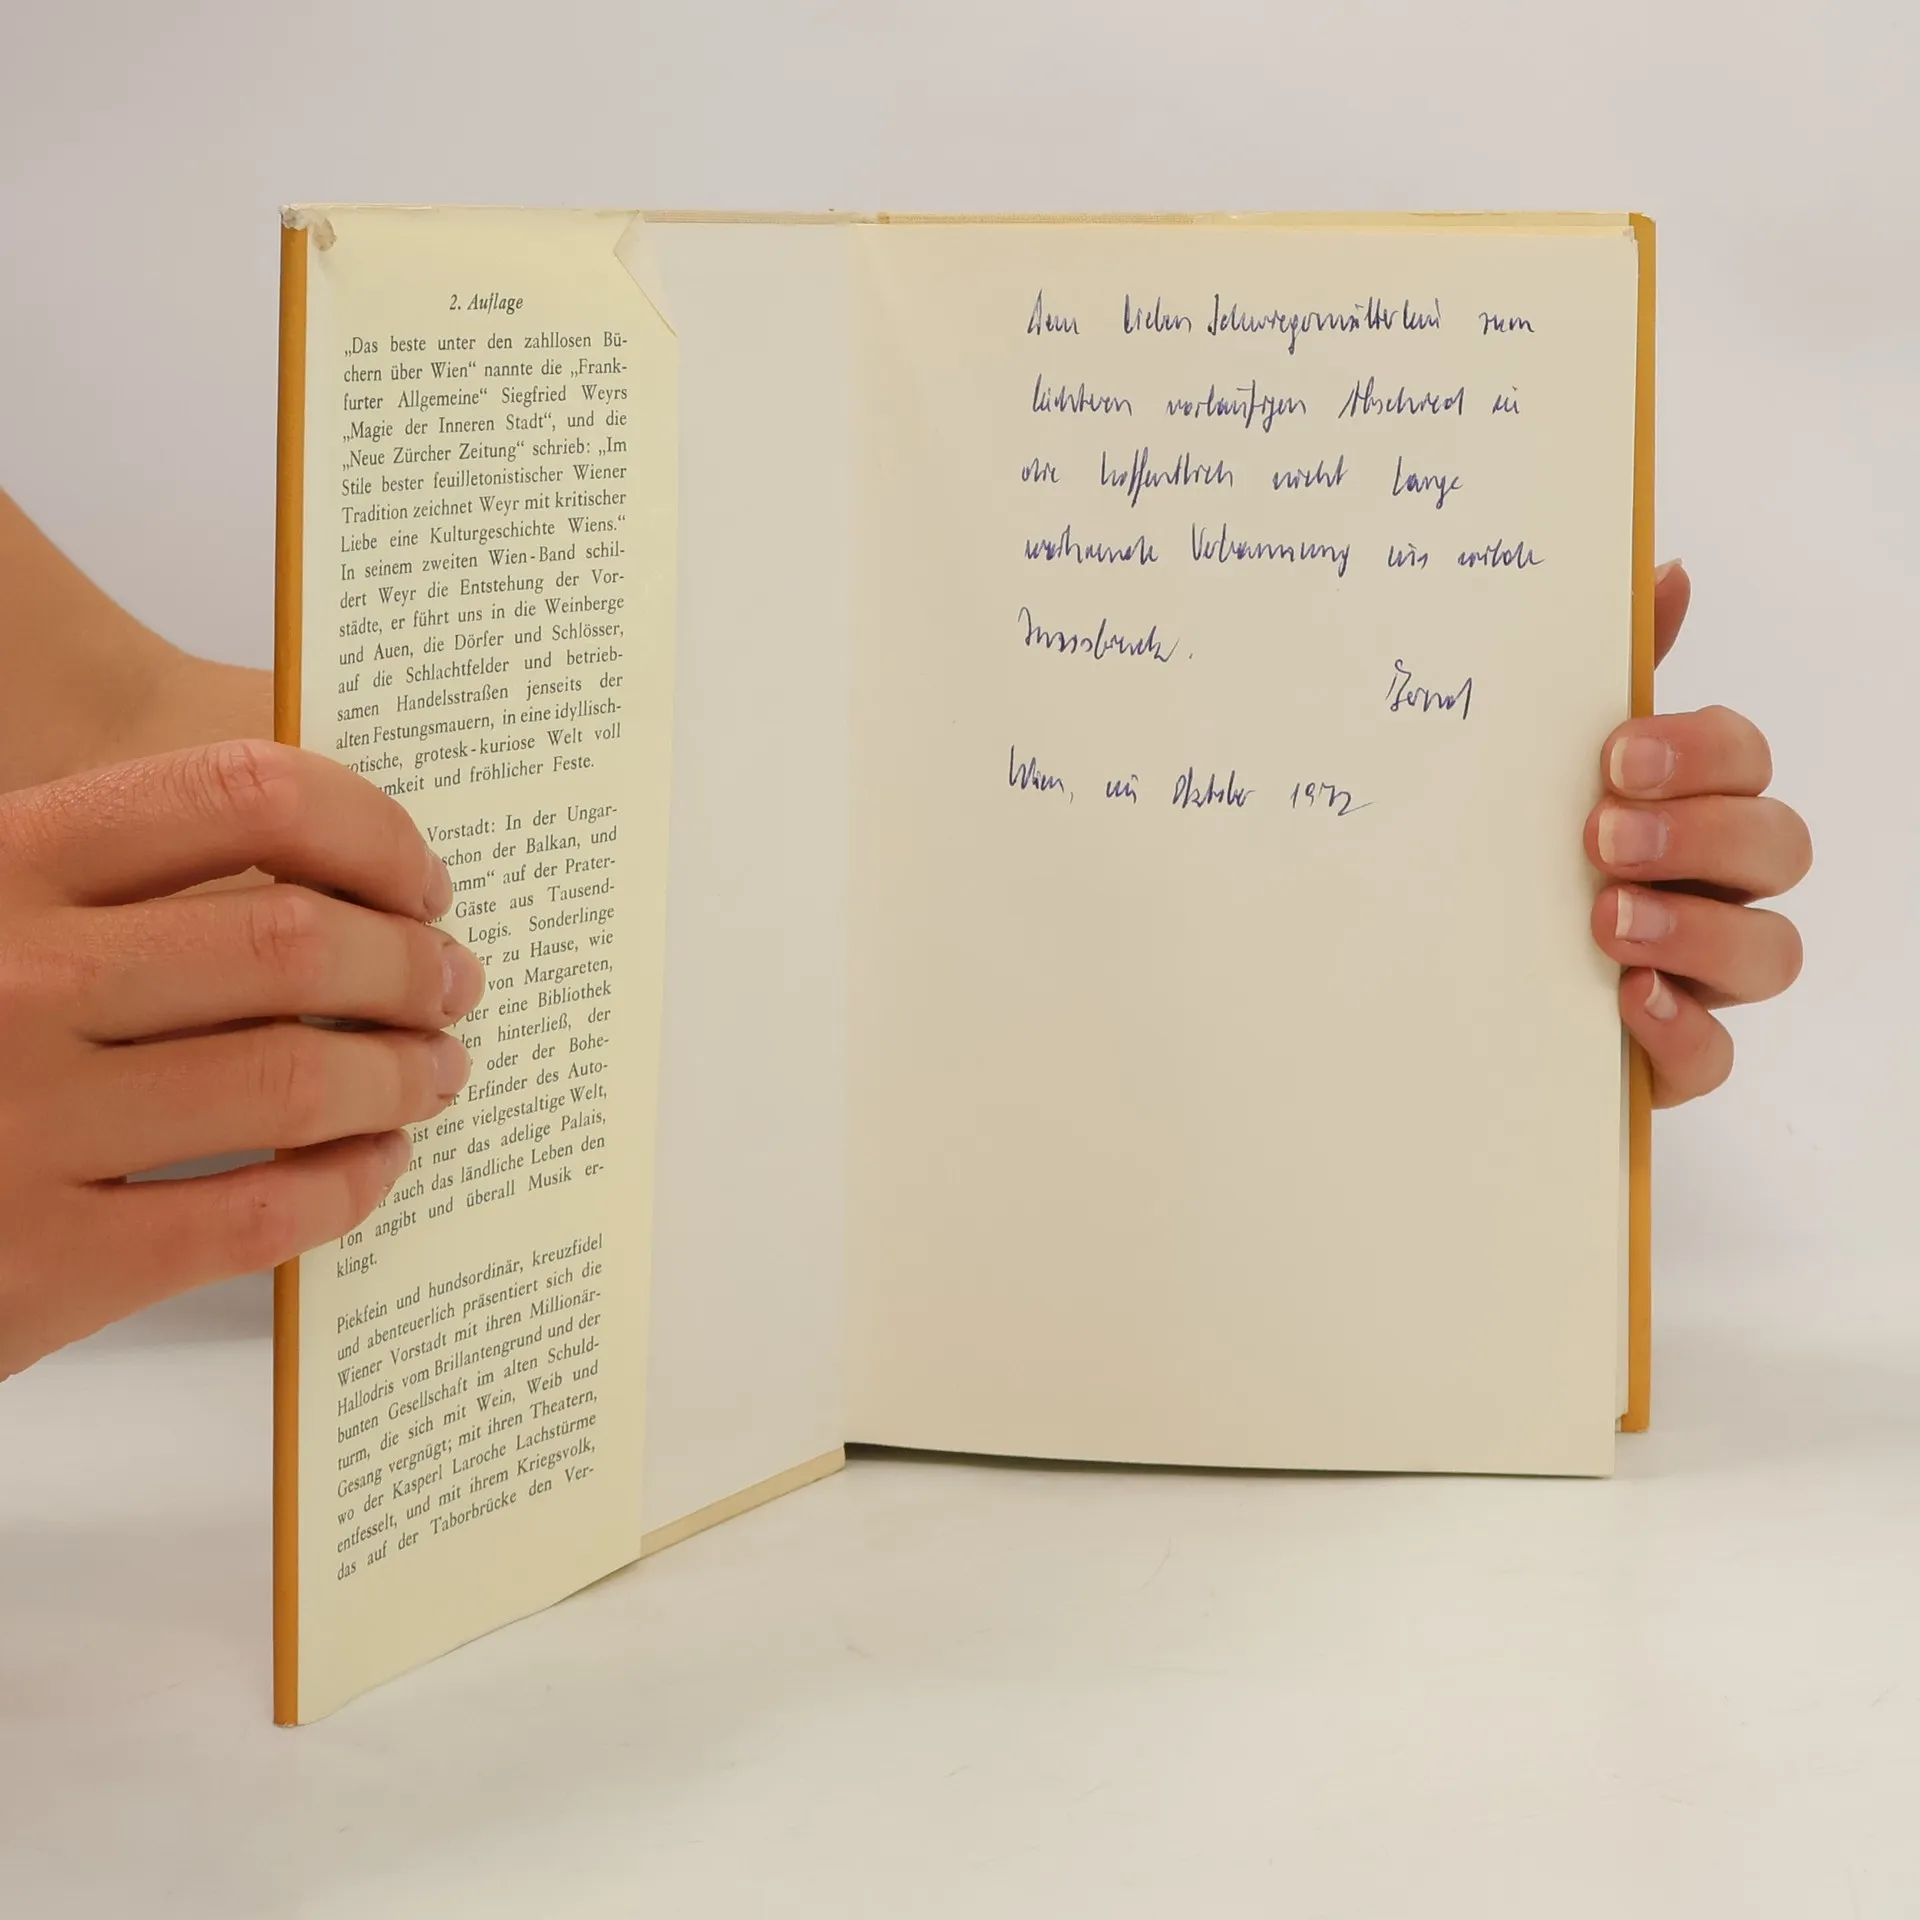 2. Auflage
„Das beste unter den zahllosen Bü-
chern über Wien“ nannte die „Frank-
furter Allgemeine“ Siegfried Weyrs
„Magie der Inneren Stadt“, und die
„Neue Zürcher Zeitung“ schrieb: „Im
Stile bester feuilletonistischer Wiener
Tradition zeichnet Weyr mit kritischer
Liebe eine Kulturgeschichte Wiens.“
In seinem zweiten Wien-Band schil-
dert Weyr die Entstehung der Vor-
städte, er führt uns in die Weinberge
und Auen, die Dörfer und Schlösser,
auf die Schlachtfelder und betrieb-
samen Handelsstraßen jenseits der
alten Festungsmauern, in eine idyllisch-
otische, grotesk-kuriose Welt voll
amkeit und fröhlicher Feste.
Vorstadt: In der Ungar-
schon der Balkan, und
amm“ auf der Prater-
Gäste aus Tausend-
Logis. Sonderlinge
er zu Hause, wie
von Margareten,
der eine Bibliothek
den hinterließ, der
oder der Bohe-
Erfinder des Auto-
ist eine vielgestaltige Welt,
nt nur das adelige Palais,
auch das ländliche Leben den
Ton angibt und überall Musik er-
klingt.
Piekfein und hundsordinär, kreuzfidel
und abenteuerlich präsentiert sich die
Wiener Vorstadt mit ihren Millionär-
Hallodris vom Brillantengrund und der
bunten Gesellschaft im alten Schuld-
turm, die sich mit Wein, Weib und
Gesang vergnügt; mit ihren Theatern,
wo der Kasperl Laroche Lachstürme
entfesselt, und mit ihrem Kriegsvolk,
das auf der Taborbrücke den Ver-
Dem lieben Schwiegermütterlein zum
leichteren vorläufigen Abschied in
die hoffentlich nicht lange
währende Verbannung ins wilde
Innsbruck.
Bernd
Wien, im Oktober 1972